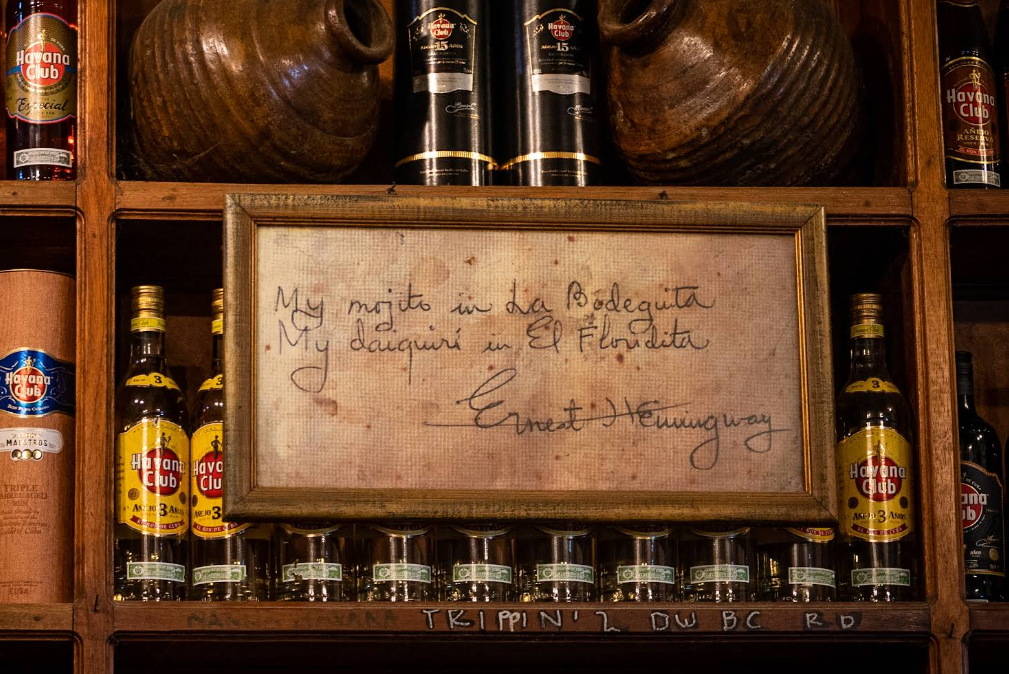 Havana
Club
Especial
Havana
Club
AÑEJO 15 AÑOS
Havana
Club
AÑEJO 15 AÑOS
Havana
Club
AÑEJO
RESERVA
My mojito in La Bodeguita
My daiquirí in El Floridita
Ernest Hemingway
Havana
Club
MAESTROS
TRIPLE
BARREL AGED
3
Havana
Club
AÑEJO 3 AÑOS
3
Hava
Club
AÑEJO 3
3
Havana
Club
AÑEJO 3 AÑOS
ana
ub
TRIPPIN'2 DW BC RD